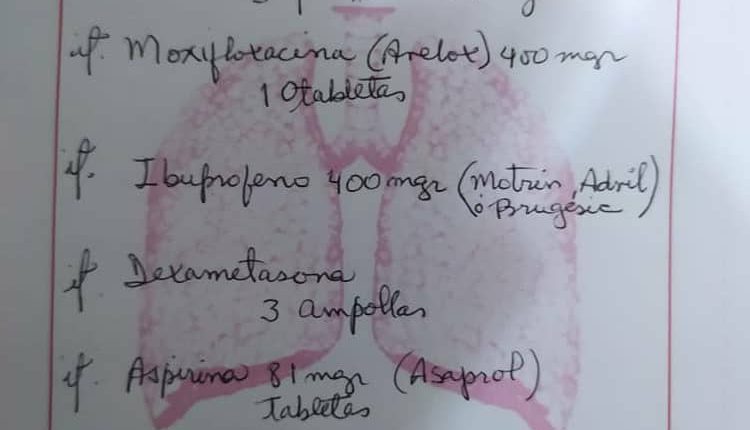 if. Moxifloxacina (Arelox) 400 mgr
10 tabletas
if. Ibuprofeno 400 mgr (Motrin, Advil
ó Brugesic)
if. Dexametasona
3 ampollas
if. Aspirina 81 mgr (Asaprol)
Tabletas